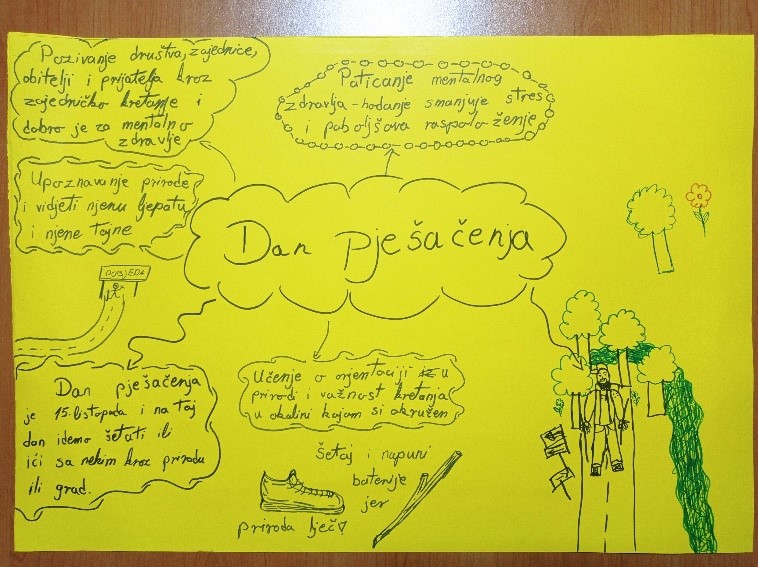 Pozivanje društva, zajednice,
obitelji i prijatelja kroz
zajedničko kretanje i
dobro je za mentalno
zdravlje
Paticanje mentalnog
zdravlja - hodanje smanjuje stres
i poboljšava raspoloženje
Upoznavanje prirode
i vidjeti njenu ljepotu
i njene tajne
Dan pješačenja
POBJEDA
Dan pješačenja
je 15. listopada i na taj
dan idemo šetati ili
ići sa nekim kroz prirodu
ili grad.
Učenje o orjentaciji u
prirodi i važnost kretanja
u okolini kojom si okružen
Šetaj i napuni
baterije
jer
priroda liječi